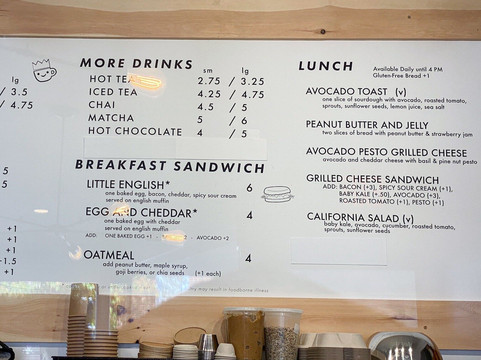 lg
/ 3.5
/ 4.75
5
5
+1
+1
+1
-1.5
+1
MORE DRINKS
sm / lg
HOT TEA 2.75 / 3.25
ICED TEA 4.25 / 4.75
CHAI 4.5 / 5
MATCHA 5 / 6
HOT CHOCOLATE 4 / 5
BREAKFAST SANDWICH
LITTLE ENGLISH* 6
one baked egg, bacon, cheddar, spicy sour cream
served on english muffin
EGG AND CHEDDAR* 4
one baked egg with cheddar
served on english muffin
ADD: ONE BAKED EGG +1 - +2 - AVOCADO +2
OATMEAL 4
add peanut butter, maple syrup,
goji berries, or chia seeds (+1 each)
may result in foodborne illness
LUNCH
Available Daily until 4 PM
Gluten-Free Bread +1
AVOCADO TOAST (v)
one slice of sourdough with avocado, roasted tomato,
sprouts, sunflower seeds, lemon juice, sea salt
PEANUT BUTTER AND JELLY
two slices of bread with peanut butter & strawberry jam
AVOCADO PESTO GRILLED CHEESE
avocado and cheddar cheese with basil & pine nut pesto
GRILLED CHEESE SANDWICH
ADD: BACON (+3), SPICY SOUR CREAM (+1),
BABY KALE (+.50), AVOCADO (+3),
ROASTED TOMATO (+1), PESTO (+1)
CALIFORNIA SALAD (v)
baby kale, avocado, cucumber, roasted tomato,
sprouts, sunflower seeds